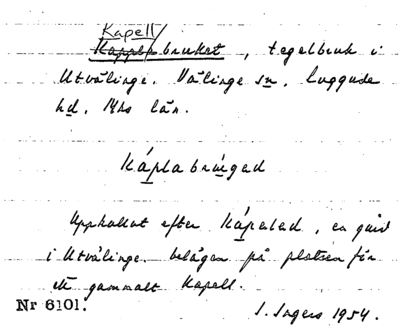 Kapell/
Kappelbruket, tegelbruk i
Utvälinge. Välinge sn. Luggude
hd. Mhs län.
Káplabrúged
Uppkallat efter Kápelad, en gård
i Utvälinge. belägen på platsen för
ett gammalt Kapell.
Nr 6101. I. Ingers 1954.